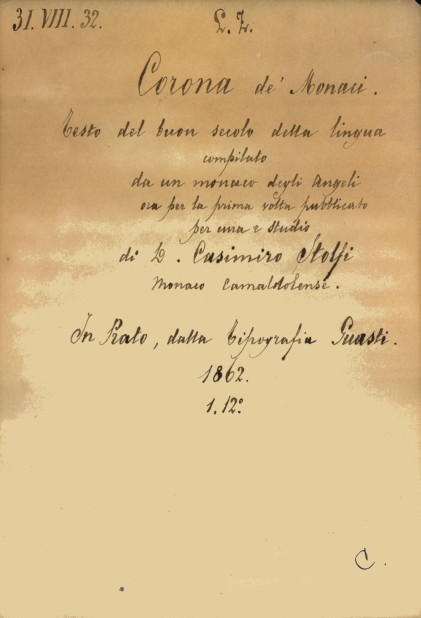 31. VIII. 32.
L. Z.
Corona de' Monaci.
Testo del buon secolo della lingua
compilato
da un monaco degli Angeli
ora per la prima volta pubblicato
per cura e studio
di D. Casimiro Stolfi
Monaco Camaldolense.
In Prato, dalla Tipografia Guasti.
1862.
1. 12º
C.